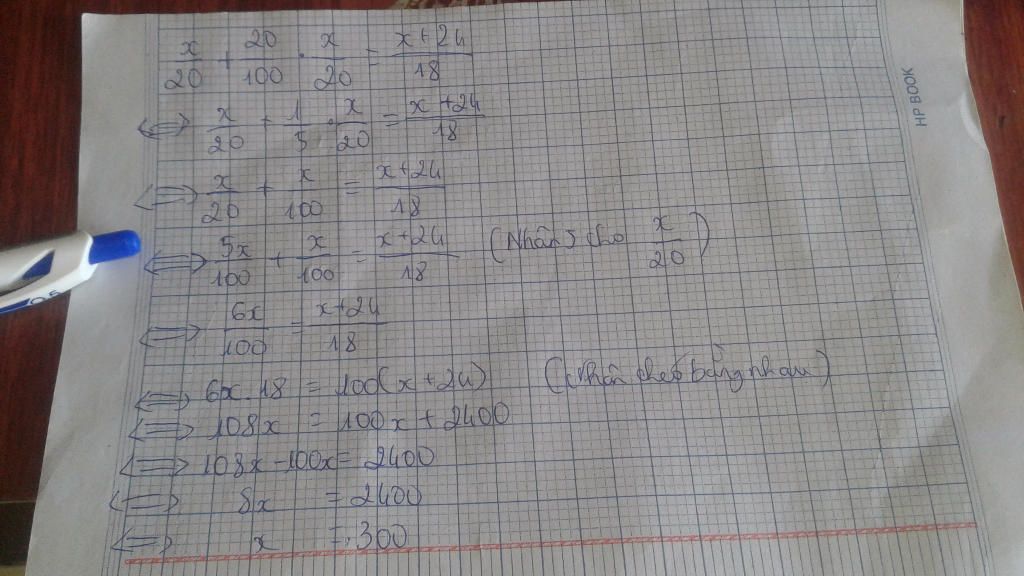 x/20 + 20/100 . x/20 = x+24/18
⇔ x/20 + 1/5 . x/20 = x+24/18
⇔ x/20 + x/100 = x+24/18
⇔ 5x/100 + x/100 = x+24/18 (Nhân 5 cho x/20)
⇔ 6x/100 = x+24/18
⇔ 6x.18 = 100(x+24) (Nhân chéo bằng nhau)
⇔ 108x = 100x + 2400
⇔ 108x - 100x = 2400
⇔ 8x = 2400
⇔ x = 300
HP BOOK
0.5